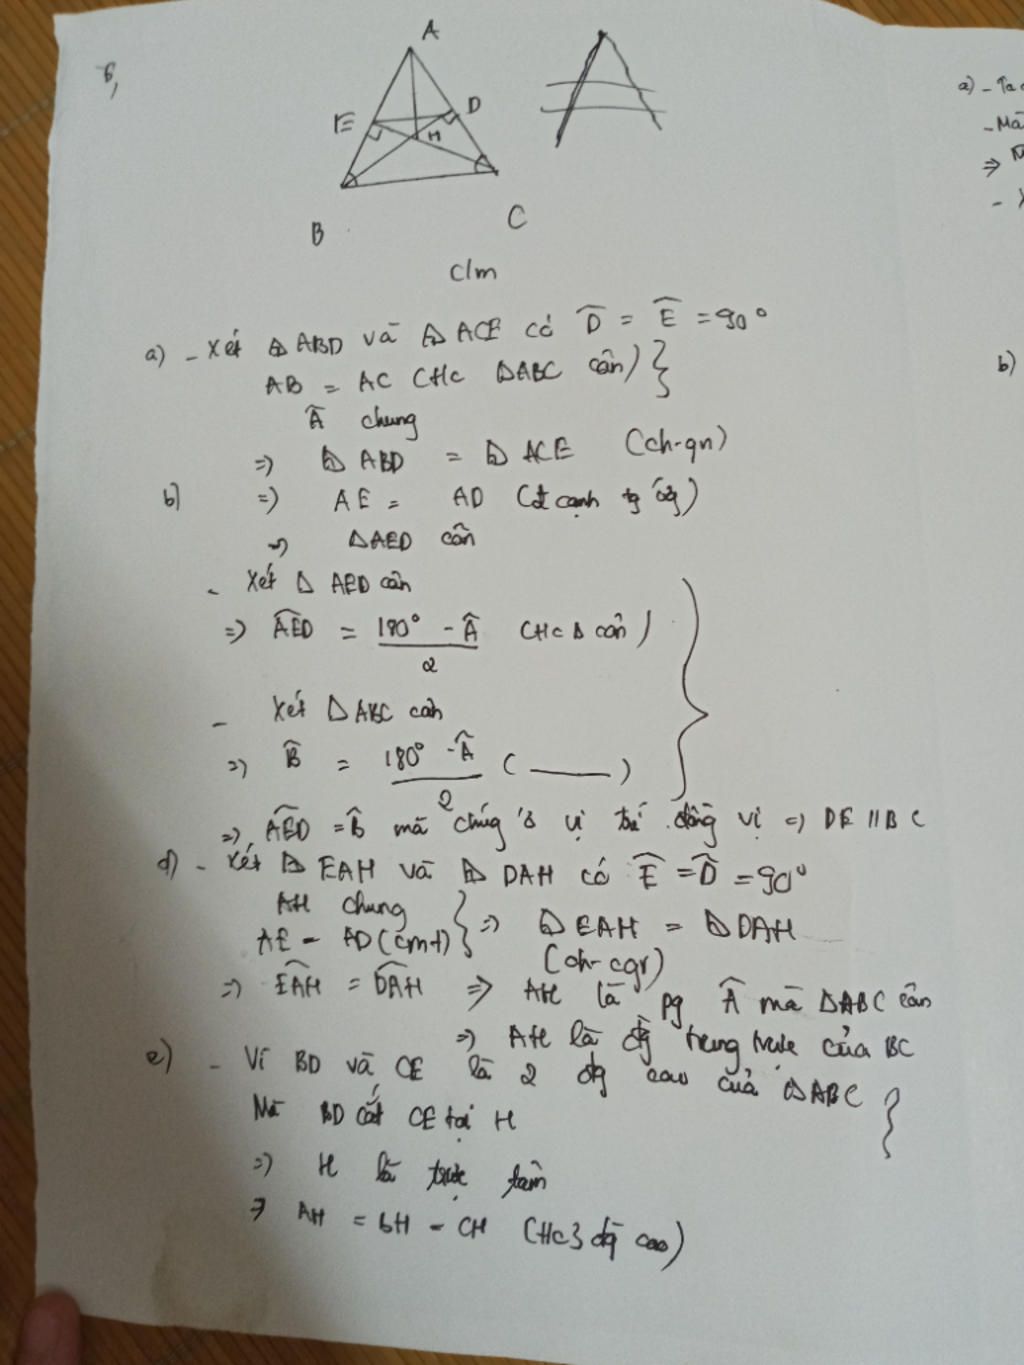 6,
A
E
D
H
B
C
c/m
a) - Xét △ ABD và △ ACE có D̂ = Ê = 90°
AB = AC (t/c △ABC cân) }
Â chung
=> △ ABD = △ ACE (ch-gn)
b) => AE = AD (2 cạnh tg ứg)
=> △AED cân
- Xét △ AED cân
=> AÊD = (180° - Â)/2 (t/c △ cân)
- Xét △ABC cân
=> B̂ = (180° - Â)/2 ( ——— )
=> AÊD = B̂ mà chúg ở vị trí đồng vị => DE // BC
d) - Xét △ EAH và △ DAH có Ê = D̂ = 90°
AH chung
AE = AD (cmt) } => △ EAH = △ DAH
(ch-cgv)
=> EÂH = DÂH => AH là pg Â mà △ABC cân
=> AH là đg trung trực của BC
e) - Vì BD và CE là 2 đg cao của △ABC }
Mà BD cắt CE tại H
=> H là trực tâm
=> AH = BH = CH (t/c 3 đg cao)
a) - Ta
- Mà
=>
-
b)